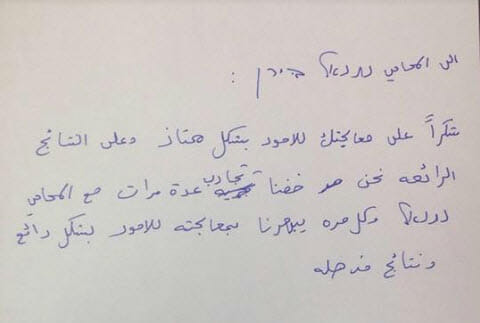 الى المحامي
شكراً على معالجتك للامور بشكل ممتاز وعلى النتائج
الرائعه نحن خضنا تجارب عدة مرات مع المحامي
وكل مره يبهرنا بمعالجته للامور بشكل رائع
ونتائج مذهله